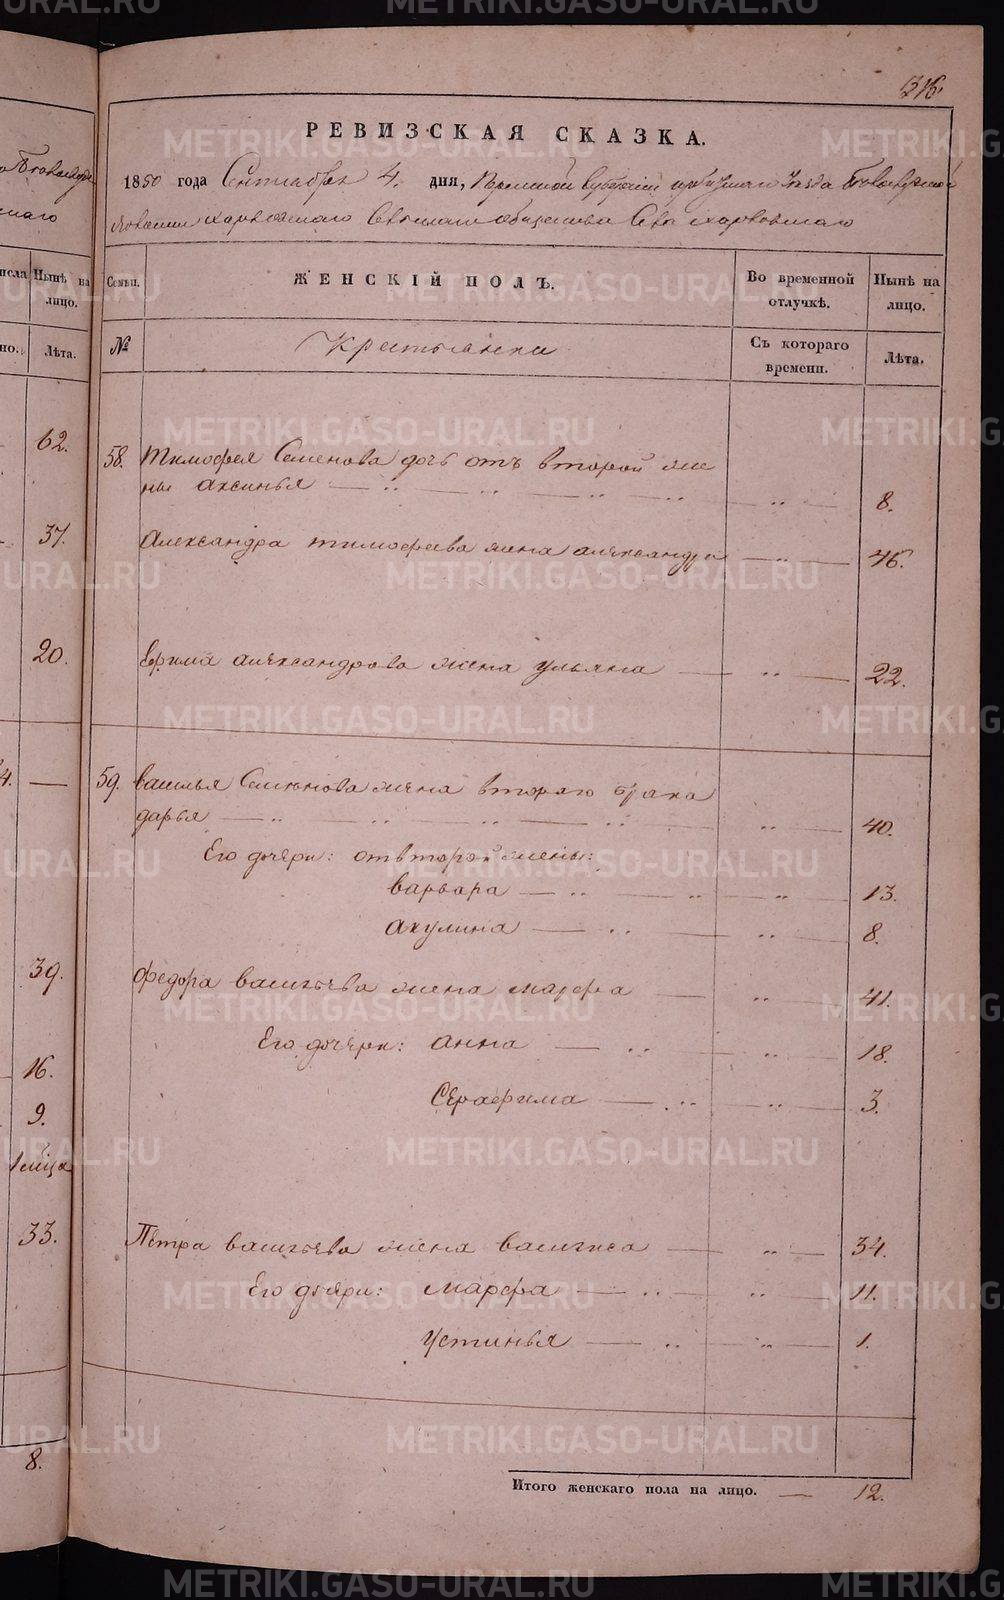 316.
РЕВИЗСКАЯ СКАЗКА.
1850 года Сентября 4. дня, Пермской Губернии Ирбитскаго Уезда
Харловскаго Сельскаго общества Села Харловскаго
Семьи. ЖЕНСКІЙ ПОЛЪ. Во временной отлучкѣ. Нынѣ на лицо.
№ Крестьянки Съ котораго времени. Лѣта.
58. Тимофея Семенова дочь отъ второй же
ны Аксинья 8.
Александра Тимофеева жена Александра 46.
Ефима Александрова жена Ульяна 22.
59. Василья Семионова жена втораго брака
Дарья 40.
Его дочери: от второй жены:
Варвара 13.
Акулина 8.
Федора Васильева жена Марфа 41.
Его дочери: Анна 18.
Серафима 3.
Петра Васильева жена Василиса 34.
Его дочери: Марфа 11.
Устинья 1.
Итого женскаго пола на лицо. 12.
Нынѣ на лицо.
Лѣта.
62.
37.
20.
39.
16.
9.
1 мѣца
33.
8.
METRIKI.GASO-URAL.RU